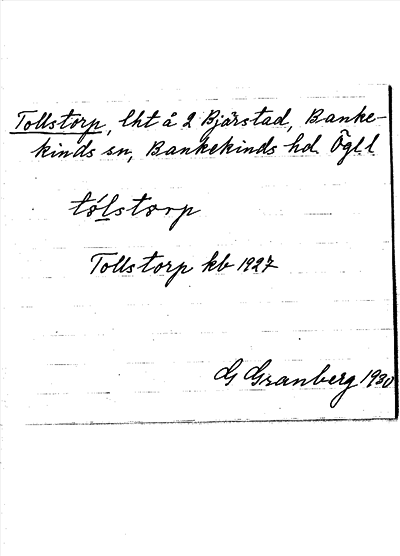 Tollstorp, lht å 2 Bjärstad, Banke-
kinds sn, Bankekinds hd. Ögl l
tólstorp
Tollstorp kb 1927
G Granberg 1930